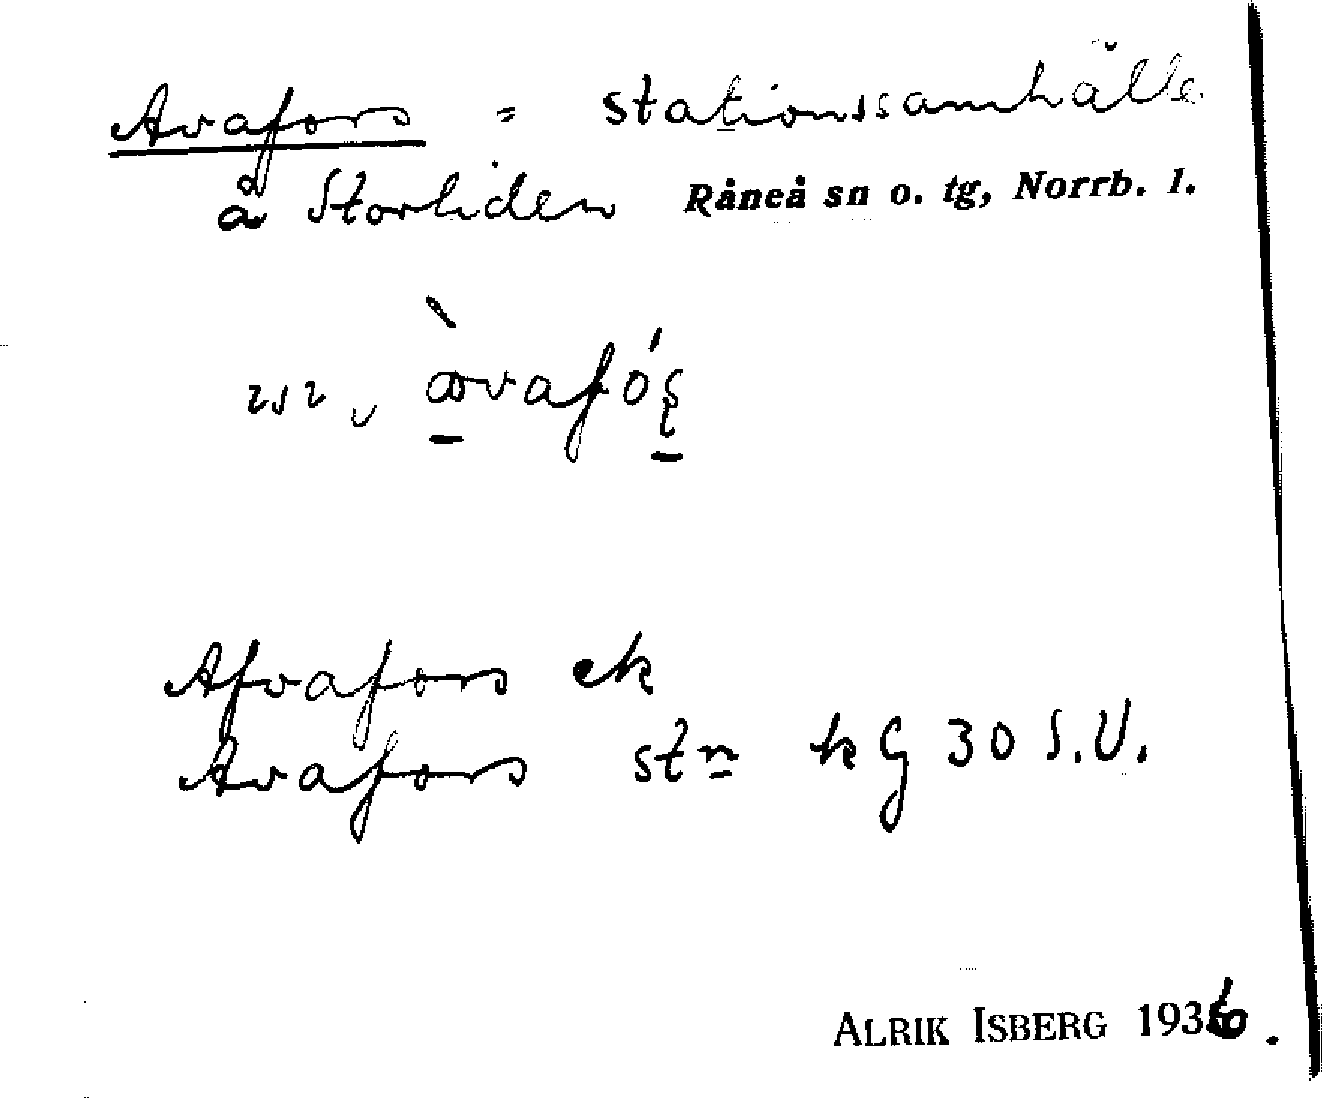 Avafors = stationssamhälle
å Storliden Råneå sn o. tg, Norrb. l.
avafóʂ
Afvafors ek
Avafors stn kG 30 S.V.
ALRIK ISBERG 1936.